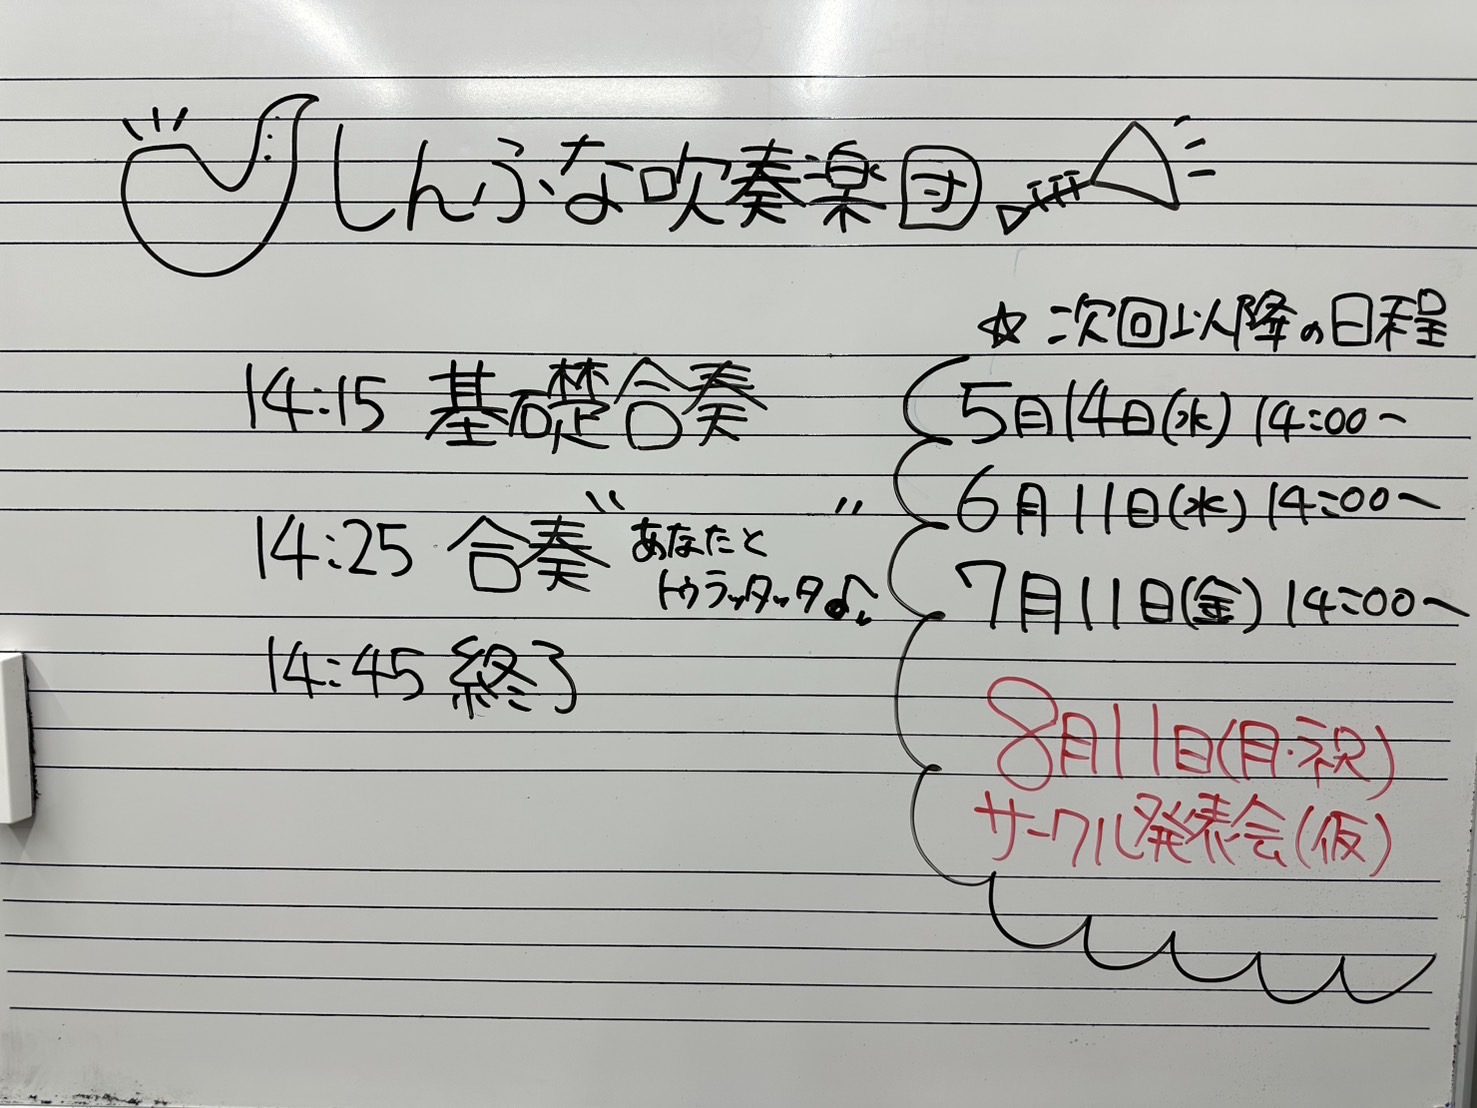 しんふな吹奏楽団
14:15 基礎合奏
14:25 合奏 "あなたと
トゥラッタッタ♪"
14:45 終了
☆次回以降の日程
5月14日(水) 14:00〜
6月11日(水) 14:00〜
7月11日(金) 14:00〜
8月11日(月・祝)
サークル発表会(仮)